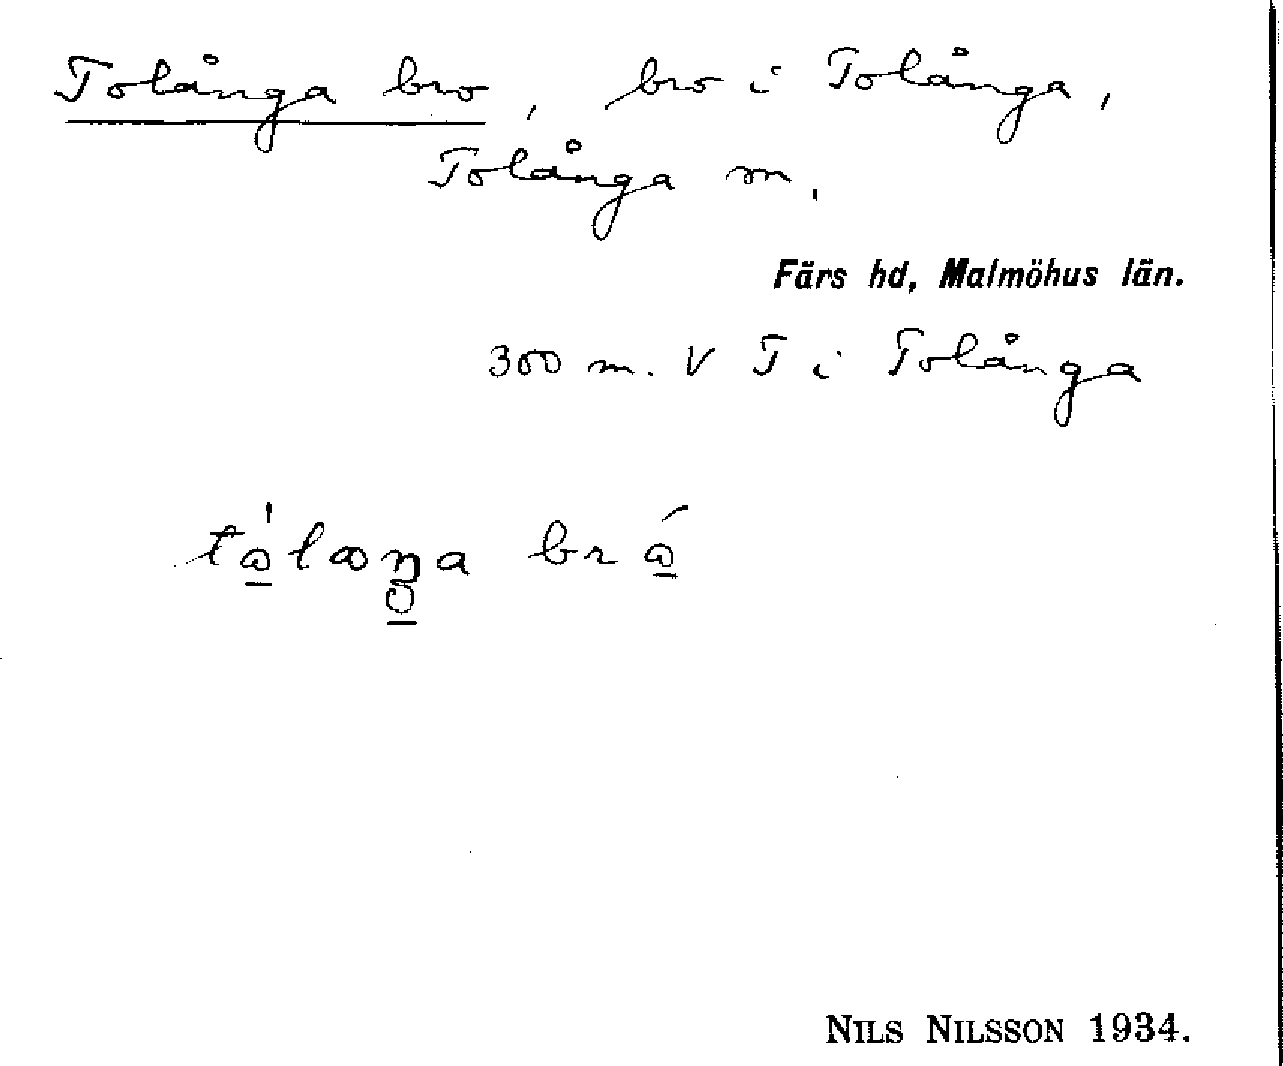 Tolånga bro, bro i Tolånga,
Tolånga sn.
Färs hd, Malmöhus län.
300 m. V T i Tolånga
NILS NILSSON 1934.